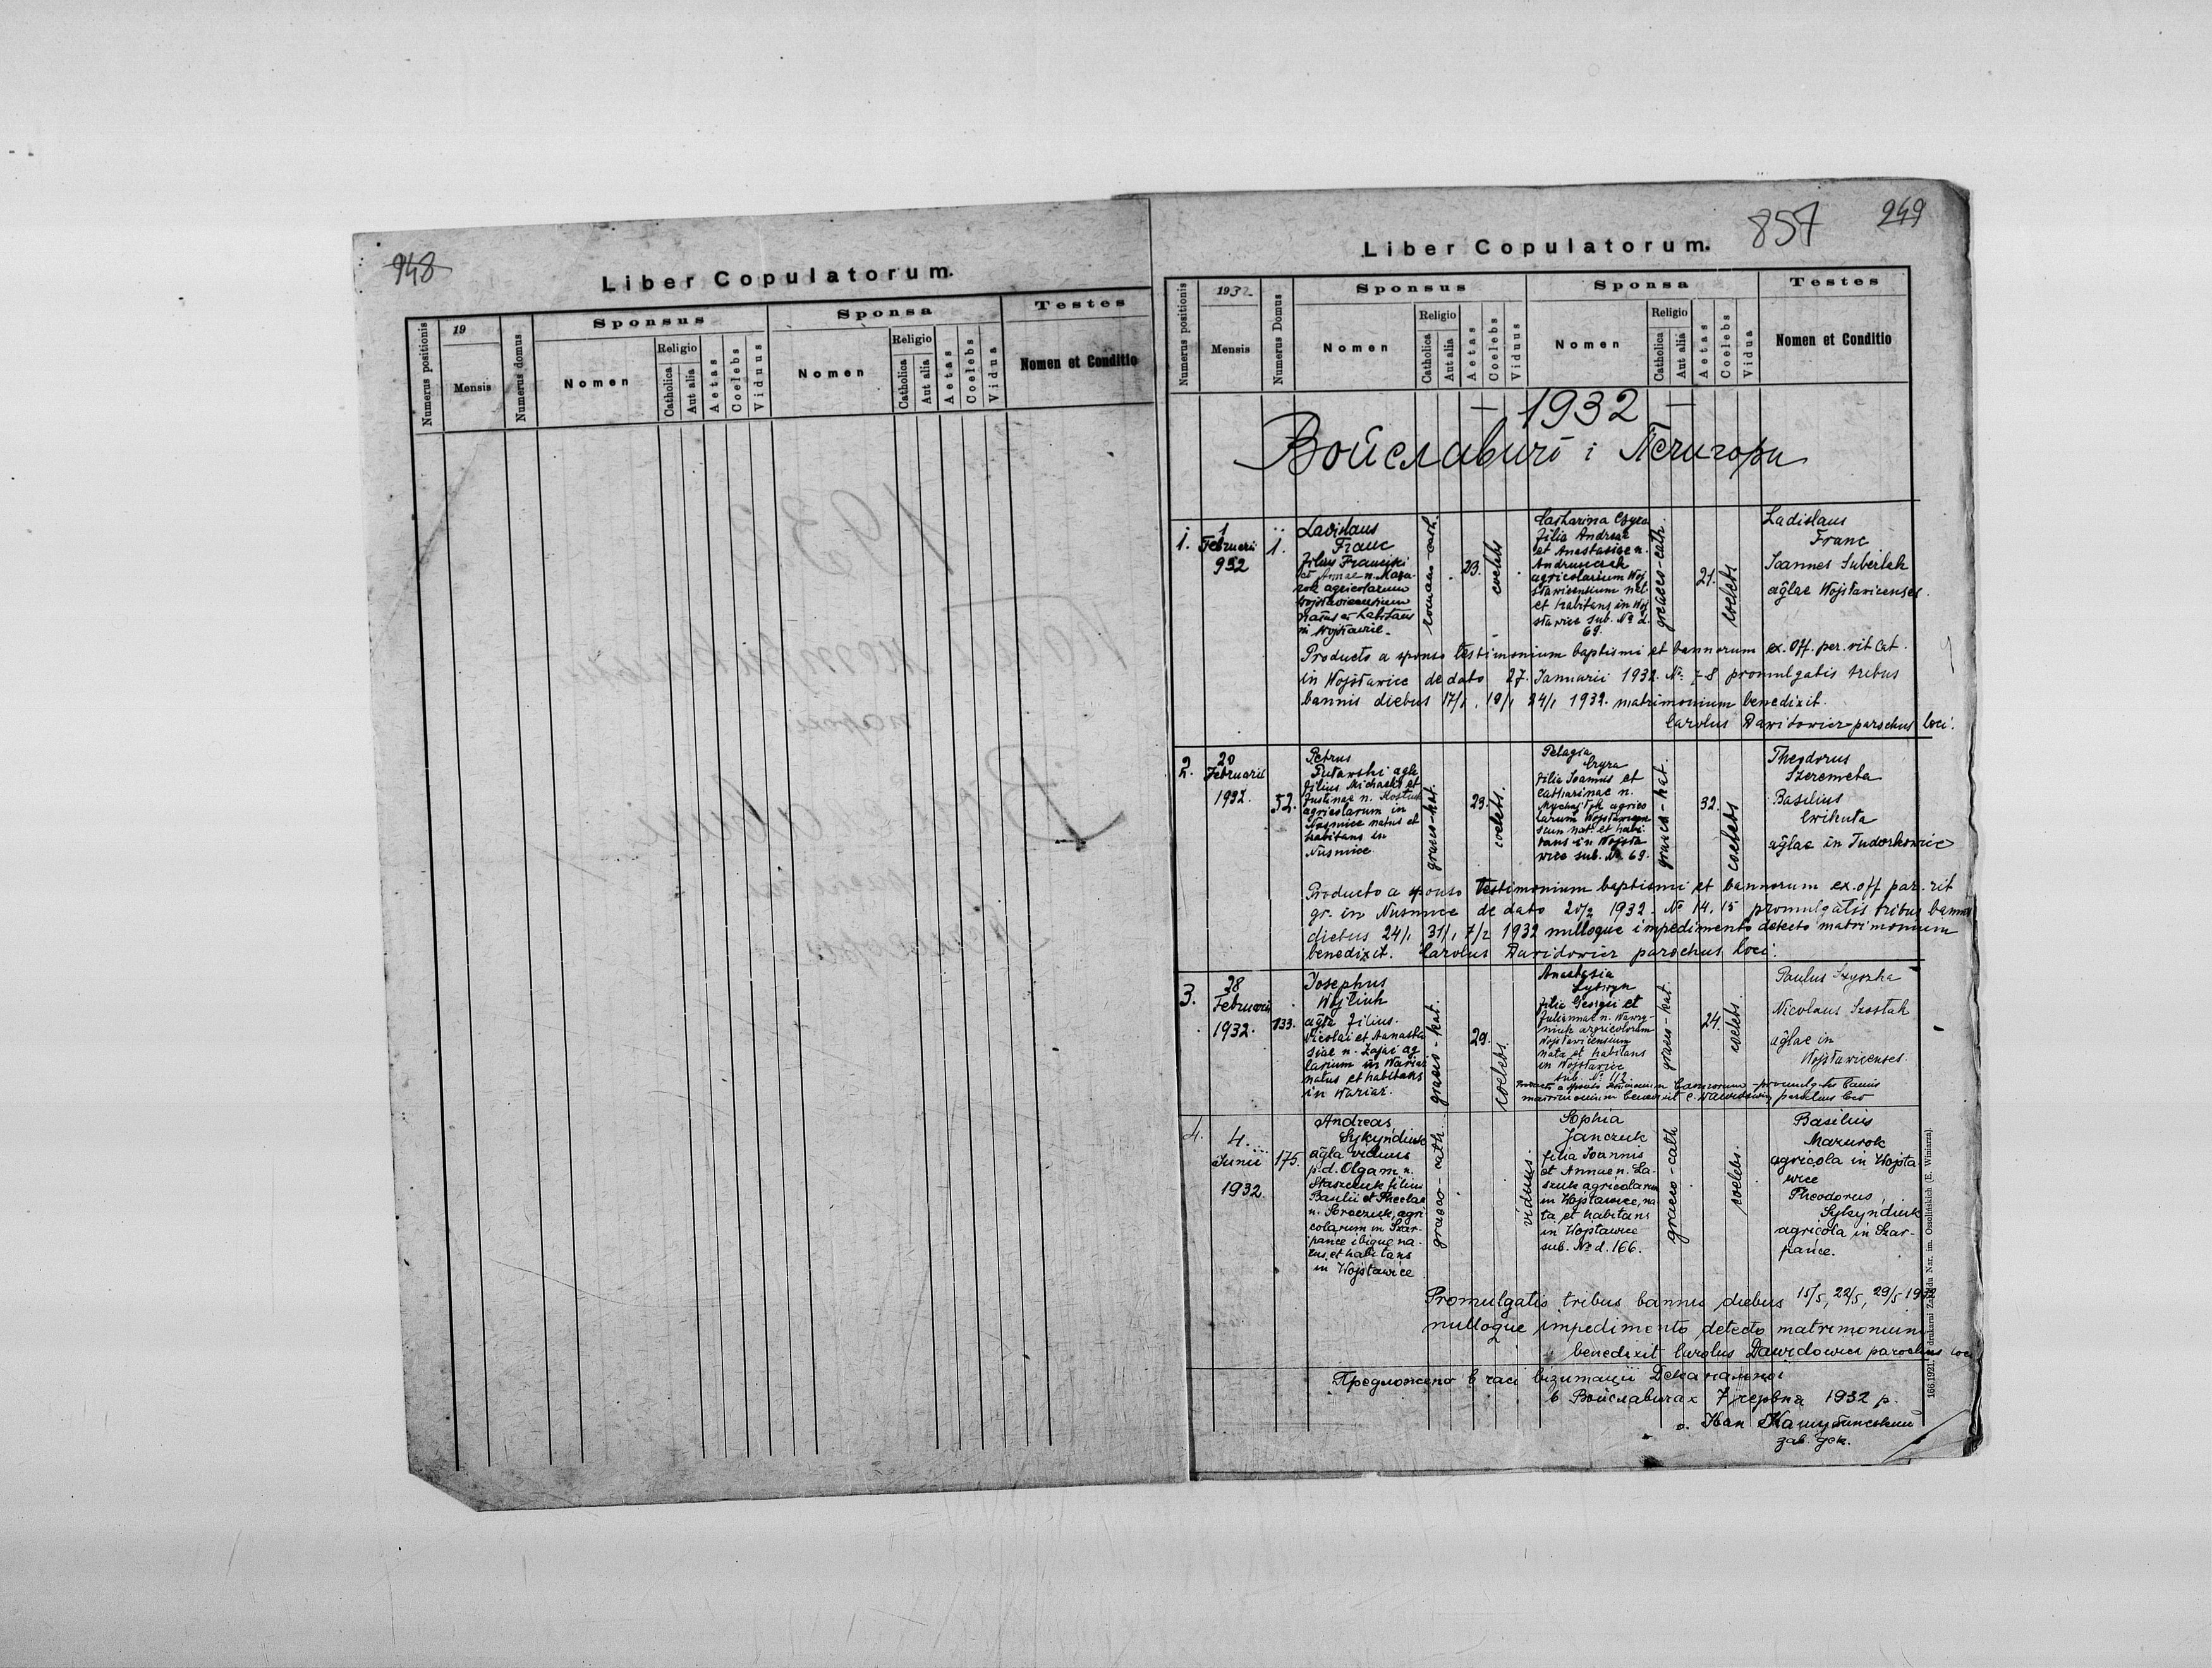 948
Liber Copulatorum.
Numerus positionis
19
Mensis
Numerus domus
Sponsus
Nomen
Religio
Catholica
Aut alia
Aetas
Coelebs
Viduus
Sponsa
Nomen
Religio
Catholica
Aut alia
Aetas
Coelebs
Vidua
Testes
Nomen et Conditio
857
249
Liber Copulatorum.
Numerus positionis
1932
Mensis
Numerus Domus
Sponsus
Nomen
Religio
Catholica
Aut alia
Aetas
Coelebs
Viduus
Sponsa
Nomen
Religio
Catholica
Aut alia
Aetas
Coelebs
Vidua
Testes
Nomen et Conditio
– 1932 –
Войславичі і
1.
1
Februarii
932
1.
Ladislaus
Franc
filius Francisci
et Annae n.
agricolarum
Wojsławicensium
natus et habitans
in Wojsławice
romano-cath.
23.
coelebs
Catharina Czyra
filia Andreae
et Anastasiae n.
Andruszczak
agricolarium Woj
sławicensium nat.
et habitans in Woj
sławice sub. № d.
69.
graeco-cath.
21.
coelebs
Ladislaus
Franc
Joannes Suberlak
aglae Wojsławicenses.
Producto a sponso testimonium baptismi et bannorum ex. off. par. rit Cat.
in Wojsławice de dato 27. Januarii 1932. № 7-8 promulgatis tribus
bannis diebus 17/1, 19/1 24/1 1932. matrimonium benedixit.
Carolus Dawidowicz parochus loci.
2.
20
Februarii
1932.
52.
Petrus
agla
filius Michaelis et
Justinae n. Kostiuk
agricolarum in
Nusmice natus et
habitans in
Nusmice
graeco-kat.
23.
coelebs.
Pelagia
Czyra
filia Joannis et
Catharinae n.
agrico
larum Wojsławicen
sium nat. et habi
tans in Wojsła
wice sub. № 69.
graeco-kat.
32.
coelebs
Theodorus
Szeremeta
Basilius
Cwikuta
aglae in Tudorkowice
Producto a sponso testimonium baptismi et bannorum ex. off par. rit
gr. in Nusmice de dato 20/2 1932. № 14, 15 promulgatis tribus bannis
diebus 24/1 31/1 7/2 1932 nulloque impedimento detecto matrimonium
benedixit. Carolus Dawidowicz parochus loci.
3.
28
Februarii
1932.
133.
Josephus
Wojtiuk
agla filius
Nicolai et Aanasta
siae n. Zajac ag
larium in Waręż
natus et habitans
in Waręż.
graeco-kat.
29.
coelebs
Anastasia
Lytwyn
filia Georgii et
Juliannae n. Wawry-
niuk agricolarum
Wojsławicensium
nata et habitans
in Wojsławice
sub № 112
graeco-kat.
24.
coelebs.
Paulus
Nicolaus Szostak
aglae in
Wojsławicenses.
Producto a sponso testimonium bannorum promulgatis bannis
matrimonium benedixit C. Dawidowicz parochus loci
4.
4.
Junii
1932.
175.
Andreas
Sykyńdiuk
agla viduus
p.d. Olgam n.
Staszczuk filius
Basilii et Theclae
n. agri
colarum in Szar-
pańce ibique na-
tus, et habitans
in Wojsławice
graeco-cath.
viduus.
Sophia
Janczuk
filia Joannis
et Annae n. La-
szuk agricolarum
in Wojsławice, na
ta et habitans
in Wojsławice
sub. № d. 166.
graeco-cath
coelebs.
Basilius
Mazurok
agricola in Wojsła
wice
Theodorus
Sykyńdiuk
agricola in Szar-
pańce.
Promulgatis tribus bannis diebus 15/5, 22/5, 29/5 1932
nulloque impedimento detecto matrimonium
benedixit Carolus Dawidowicz parochus loci
Предложено в часі візитації Деканальної
в Войславичах 7 червня 1932 р.
о. Іван
зав. дек.
166.1921. Z drukarni Zakładu Nar. im. Ossolińskich (E. Winiarza).